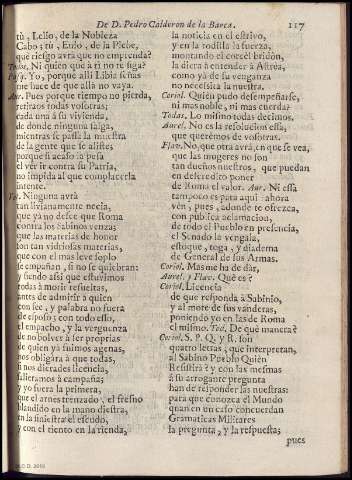 De D. Pedro Calderon de la Barca. 117
tù, Lelio, de la Nobleza
Cabo; tù, Eulo, de la Plebe,
què riesgo avrà que no emprenda?
Todas. Ni quien que à ti no te siga?
Pasq. Yo, porque alli Libia señas
me hace de que allà no vaya.
Aur. Pues porque tiempo no pierda,
retiraos todas vosotras;
cada una à su vivienda,
de donde ninguna salga,
mientras se passa la muestra
de la gente que se aliste;
porque si acaso le pesa
el ver ir contra su Patria,
no impida al que complacerla
intente.
Vet. Ninguna avrà
tan livianamente necia,
que yà no desee que Roma
contra los Sabinos venza;
que las materias de honor
son tan vidriosas materias,
que con el mas leve soplo
se empañan, si no se quiebran:
y siendo assi que estuvimos
todas à morir resueltas,
antes de admitir à quien
con fee, y palabra no fuera
de esposo; con todo esso,
el empacho, y la verguenza
de no bolver à ser proprias
de quien yà fuimos agenas,
nos obligàra à que todas,
si nos dierades licencia,
salieramos à campaña;
y yo fuera la primera,
que el arnès trenzado, el fresno
blandido en la mano diestra,
en la siniestra el escudo,
y con el tiento en la rienda,
la noticia en el estrivo,
y en la rodilla la fuerza,
montando el corcel bridòn,
la diera à entender à Astrea,
como yà de su venganza
no necessita la nuestra.
Coriol. Quièn pudo desempeñarse,
ni mas noble, ni mas cuerda?
Todas. Lo mismo todas decimos.
Aurel. No es la resolucion essa,
que querèmos de vosotras.
Flav. No, que otra avrà, en que se vea,
que las mugeres no son
tan dueños nuestros, que puedan
en descredito poner
de Roma el valor. Aur. Ni essa
tampoco es para aqui: ahora
vèn, pues, adonde te ofrezca,
con publica aclamacion,
de todo el Pueblo en presencia,
el Senado la vengala,
estoque, toga, y diadema
de General de sus Armas.
Coriol. Mas me ha de dàr,
Aurel. y Flav. Què es?
Coriol. Licencia
de que responda à Sabinio,
y al mote de sus vanderas,
poniendo yo en las de Roma
el mismo. Tod. De què manera?
Coriol. S. P. Q. y R. son
quatro letras, que interpretan,
al Sabino Pueblo Quièn
Resistirà? y con las mesmas
à su arrogante pregunta
han de responder las nuestras:
para que conozca el Mundo
quan en un caso concuerdan
Gramaticas Militares
la pregunta, y la respuesta;
pues